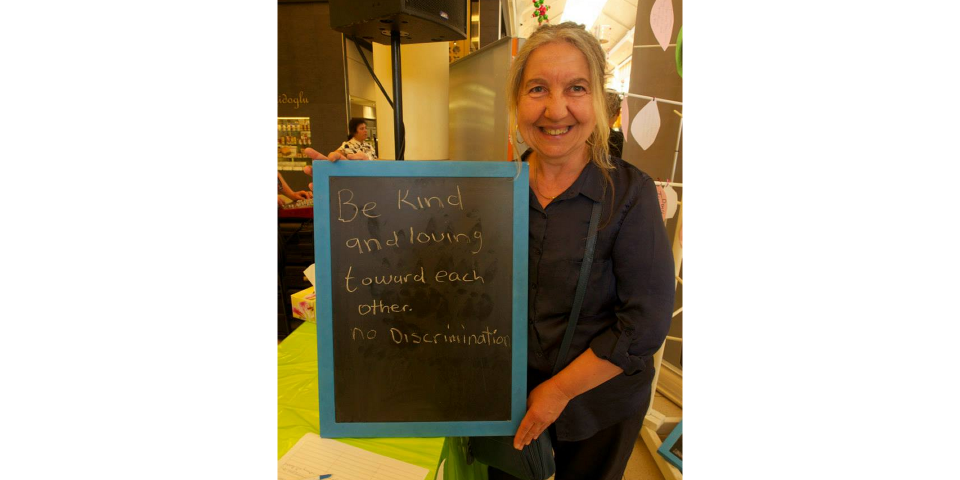 idoglu
Be Kind
and loving
toward each
other.
no Discrimination